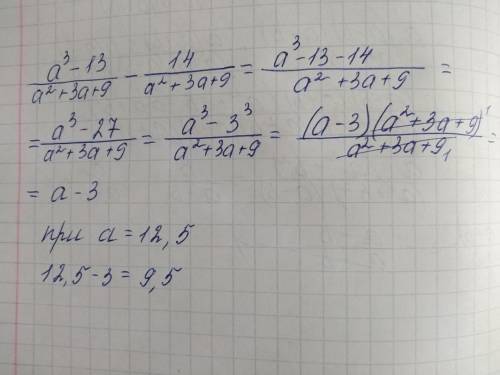 (a³-13)/(a²+3a+9) - 14/(a²+3a+9) = (a³-13-14)/(a²+3a+9) =
= (a³-27)/(a²+3a+9) = (a³-3³)/(a²+3a+9) = (a-3)(a²+3a+9)¹/(a²+3a+9)₁ =
= a-3
при a=12,5
12,5-3=9,5